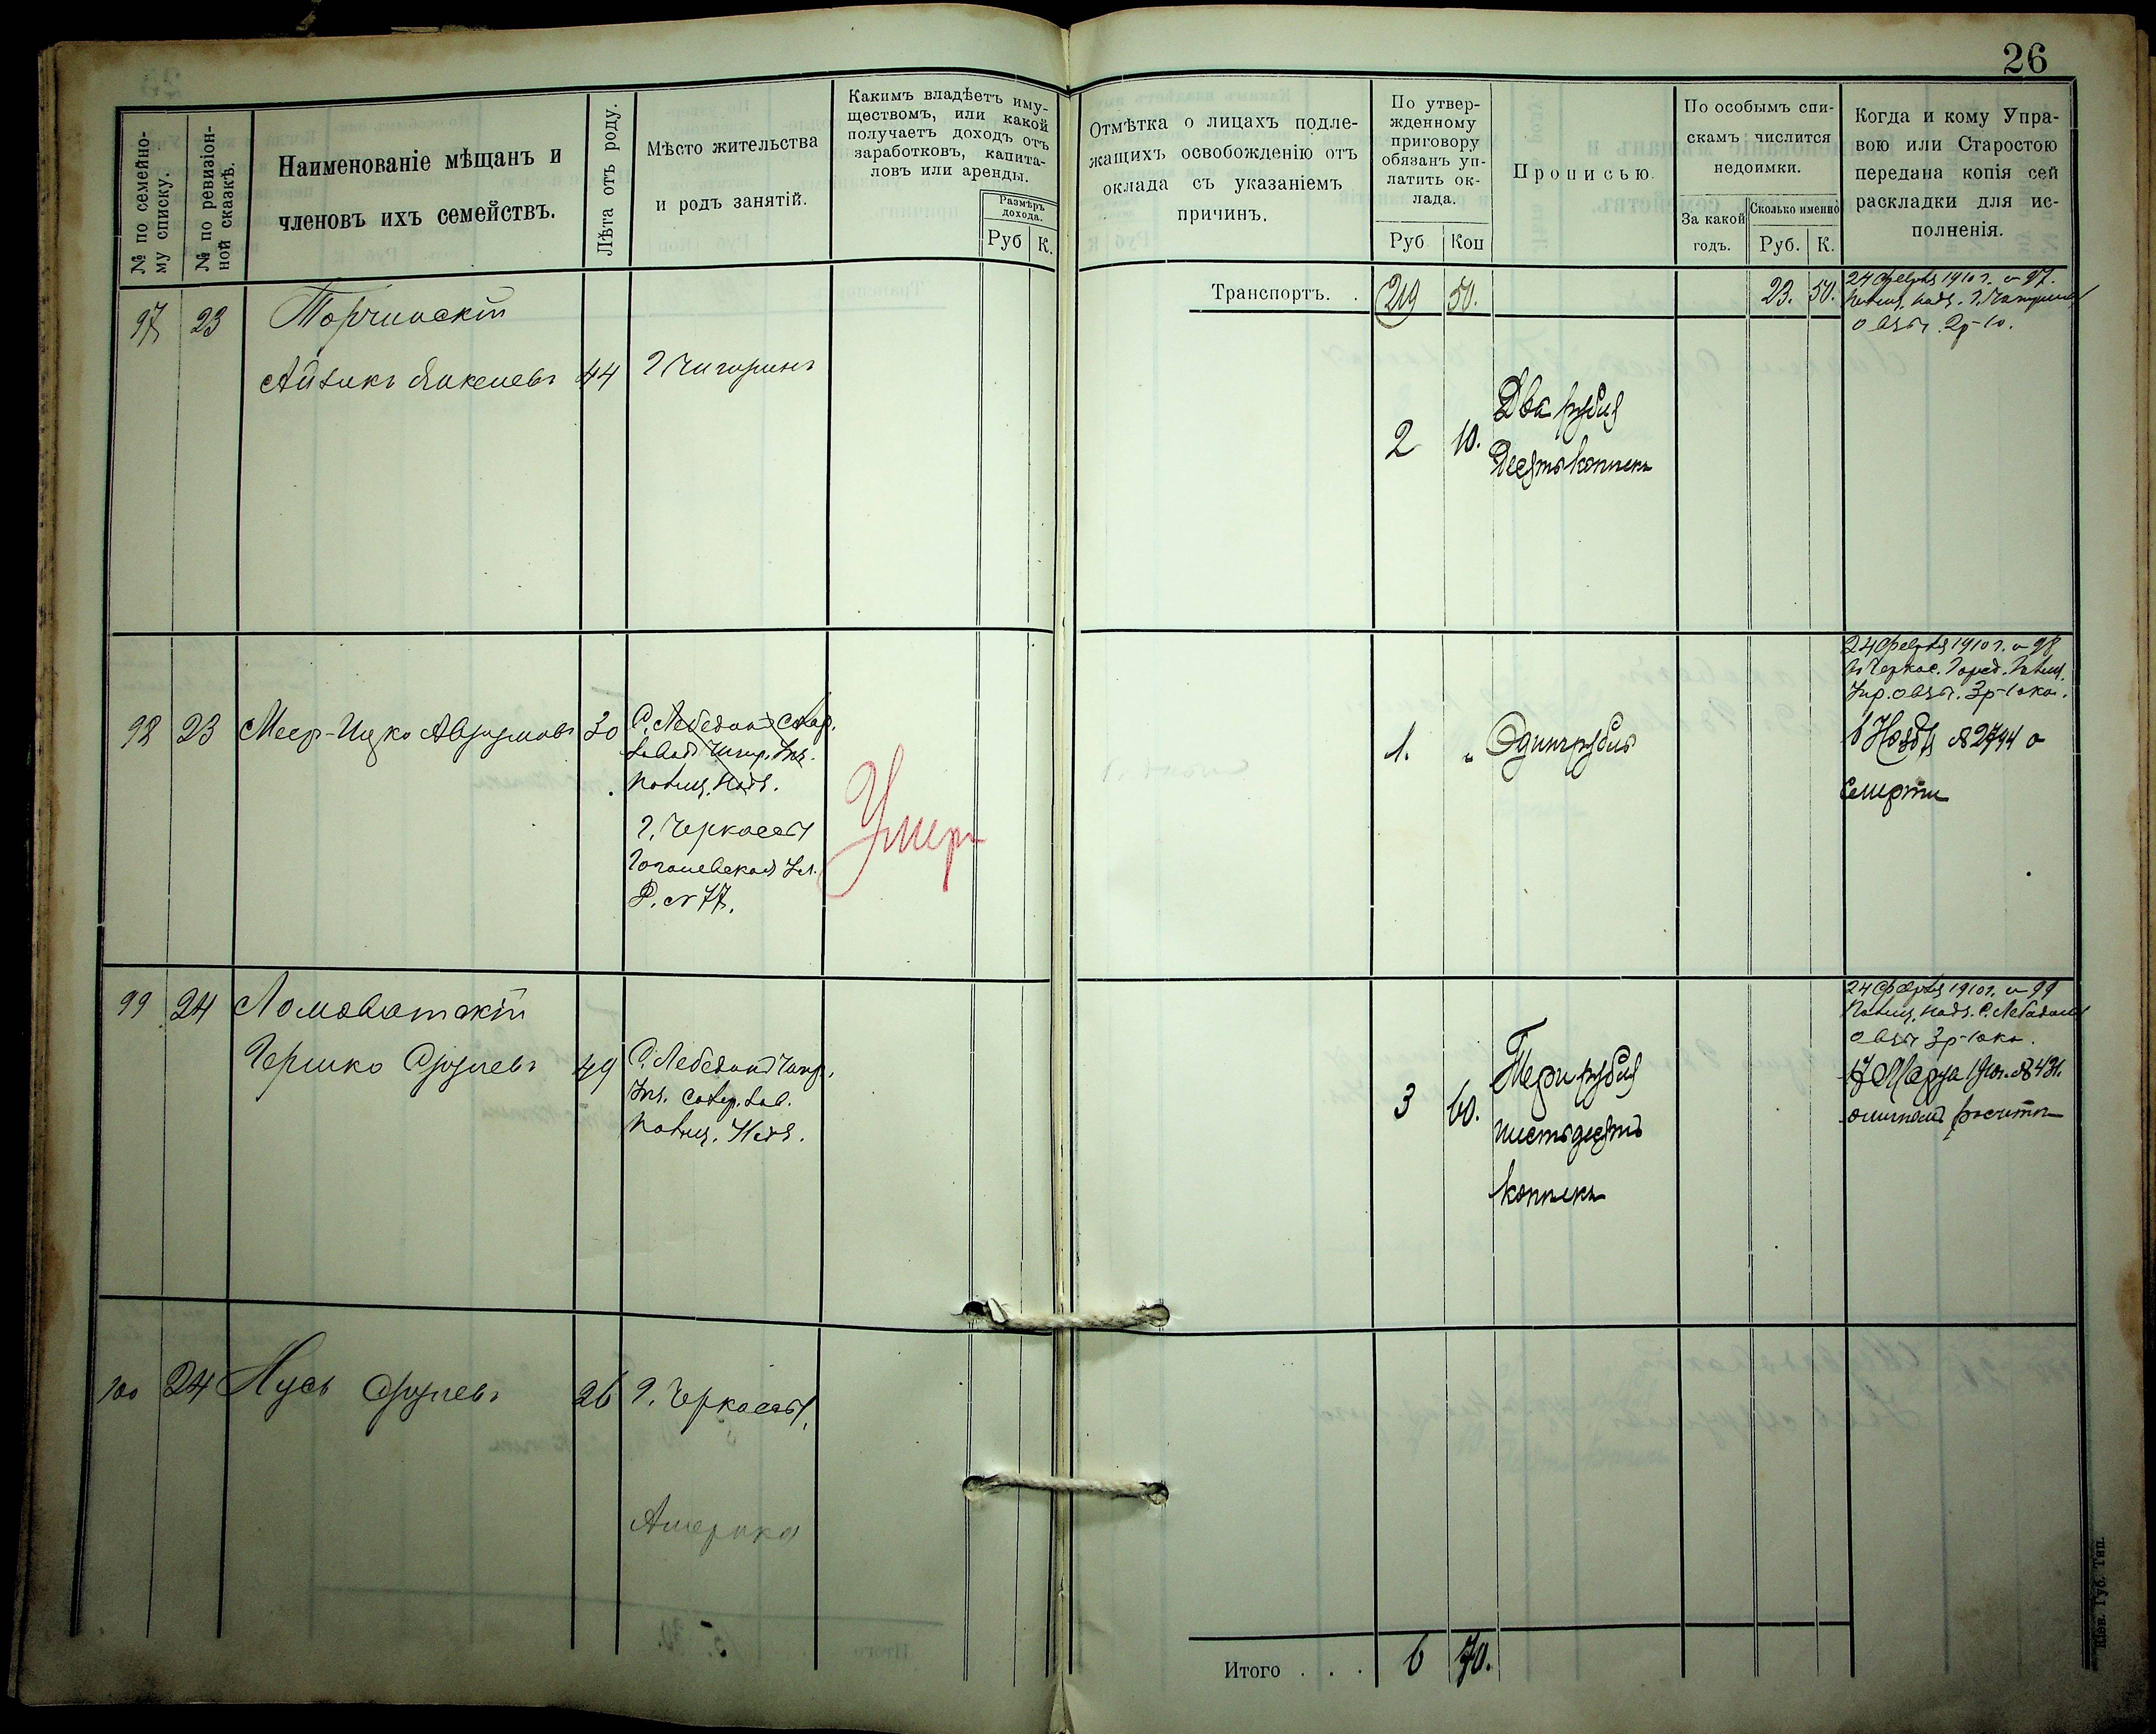 26
№ по семейно-
му списку.
№ по ревизіон-
ной сказкѣ.
Наименованіе мѣщанъ и
членовъ ихъ семействъ.
Лѣта отъ роду.
Мѣсто жительства
и родъ занятій.
Какимъ владѣетъ иму-
ществомъ, или какой
получаетъ доходъ отъ
заработковъ, капита-
ловъ или аренды.
Размѣръ
дохода.
Руб К.
Отмѣтка о лицахъ подле-
жащихъ освобожденію отъ
оклада съ указаніемъ
причинъ.
По утвер-
жденному
приговору
обязанъ уп-
латить ок-
лада.
Руб Коп
Прописью.
По особымъ спи-
скамъ числится
недоимки.
За какой
годъ.
Сколько именно
Руб. К.
Когда и кому Упра-
вою или Старостою
передана копія сей
раскладки для ис-
полненія.
Транспортъ. . 219 50. 23. 50.
97 23 Торчинскій
Айзикъ 44 г Чигиринъ
2 10. Два рубля
Десять копѣекъ
24 февраля 1910 г. № 97.
Полиц. надз. г.
о взыс. 2р-10.
98 23 Меер-Ицко Абрумовъ 30 С. Лебединъ Сахар.
завод Чигир. у.
Полиц. Надз.
г. Черкассы
Гоголевская Ул.
Д. № 77.
Умеръ
1. „ Одинъ рубль
24 февраля 1910 г. № 98
Въ Черкас. Город. Полиц.
Упр. о взыс. 3р-
Нояб № 2744 о
смерти
99 24 Ломоватскій
Гершко Срулевъ 49 С. Лебединъ Чигир.
у. Сахар. зав.
Полиц. Надз.
3 60. Три рубля
шестьдесятъ
копѣекъ
24 февраля 1910 г. № 99
Полиц. надз. С. Лебедин
о взыс 3р-
17 Марта 1910 г. № 431.
100 24 Нусь Срулевъ 26 г. Черкассы,
Америка
Итого . . . 6 70.
Кіев. Губ. Тип.